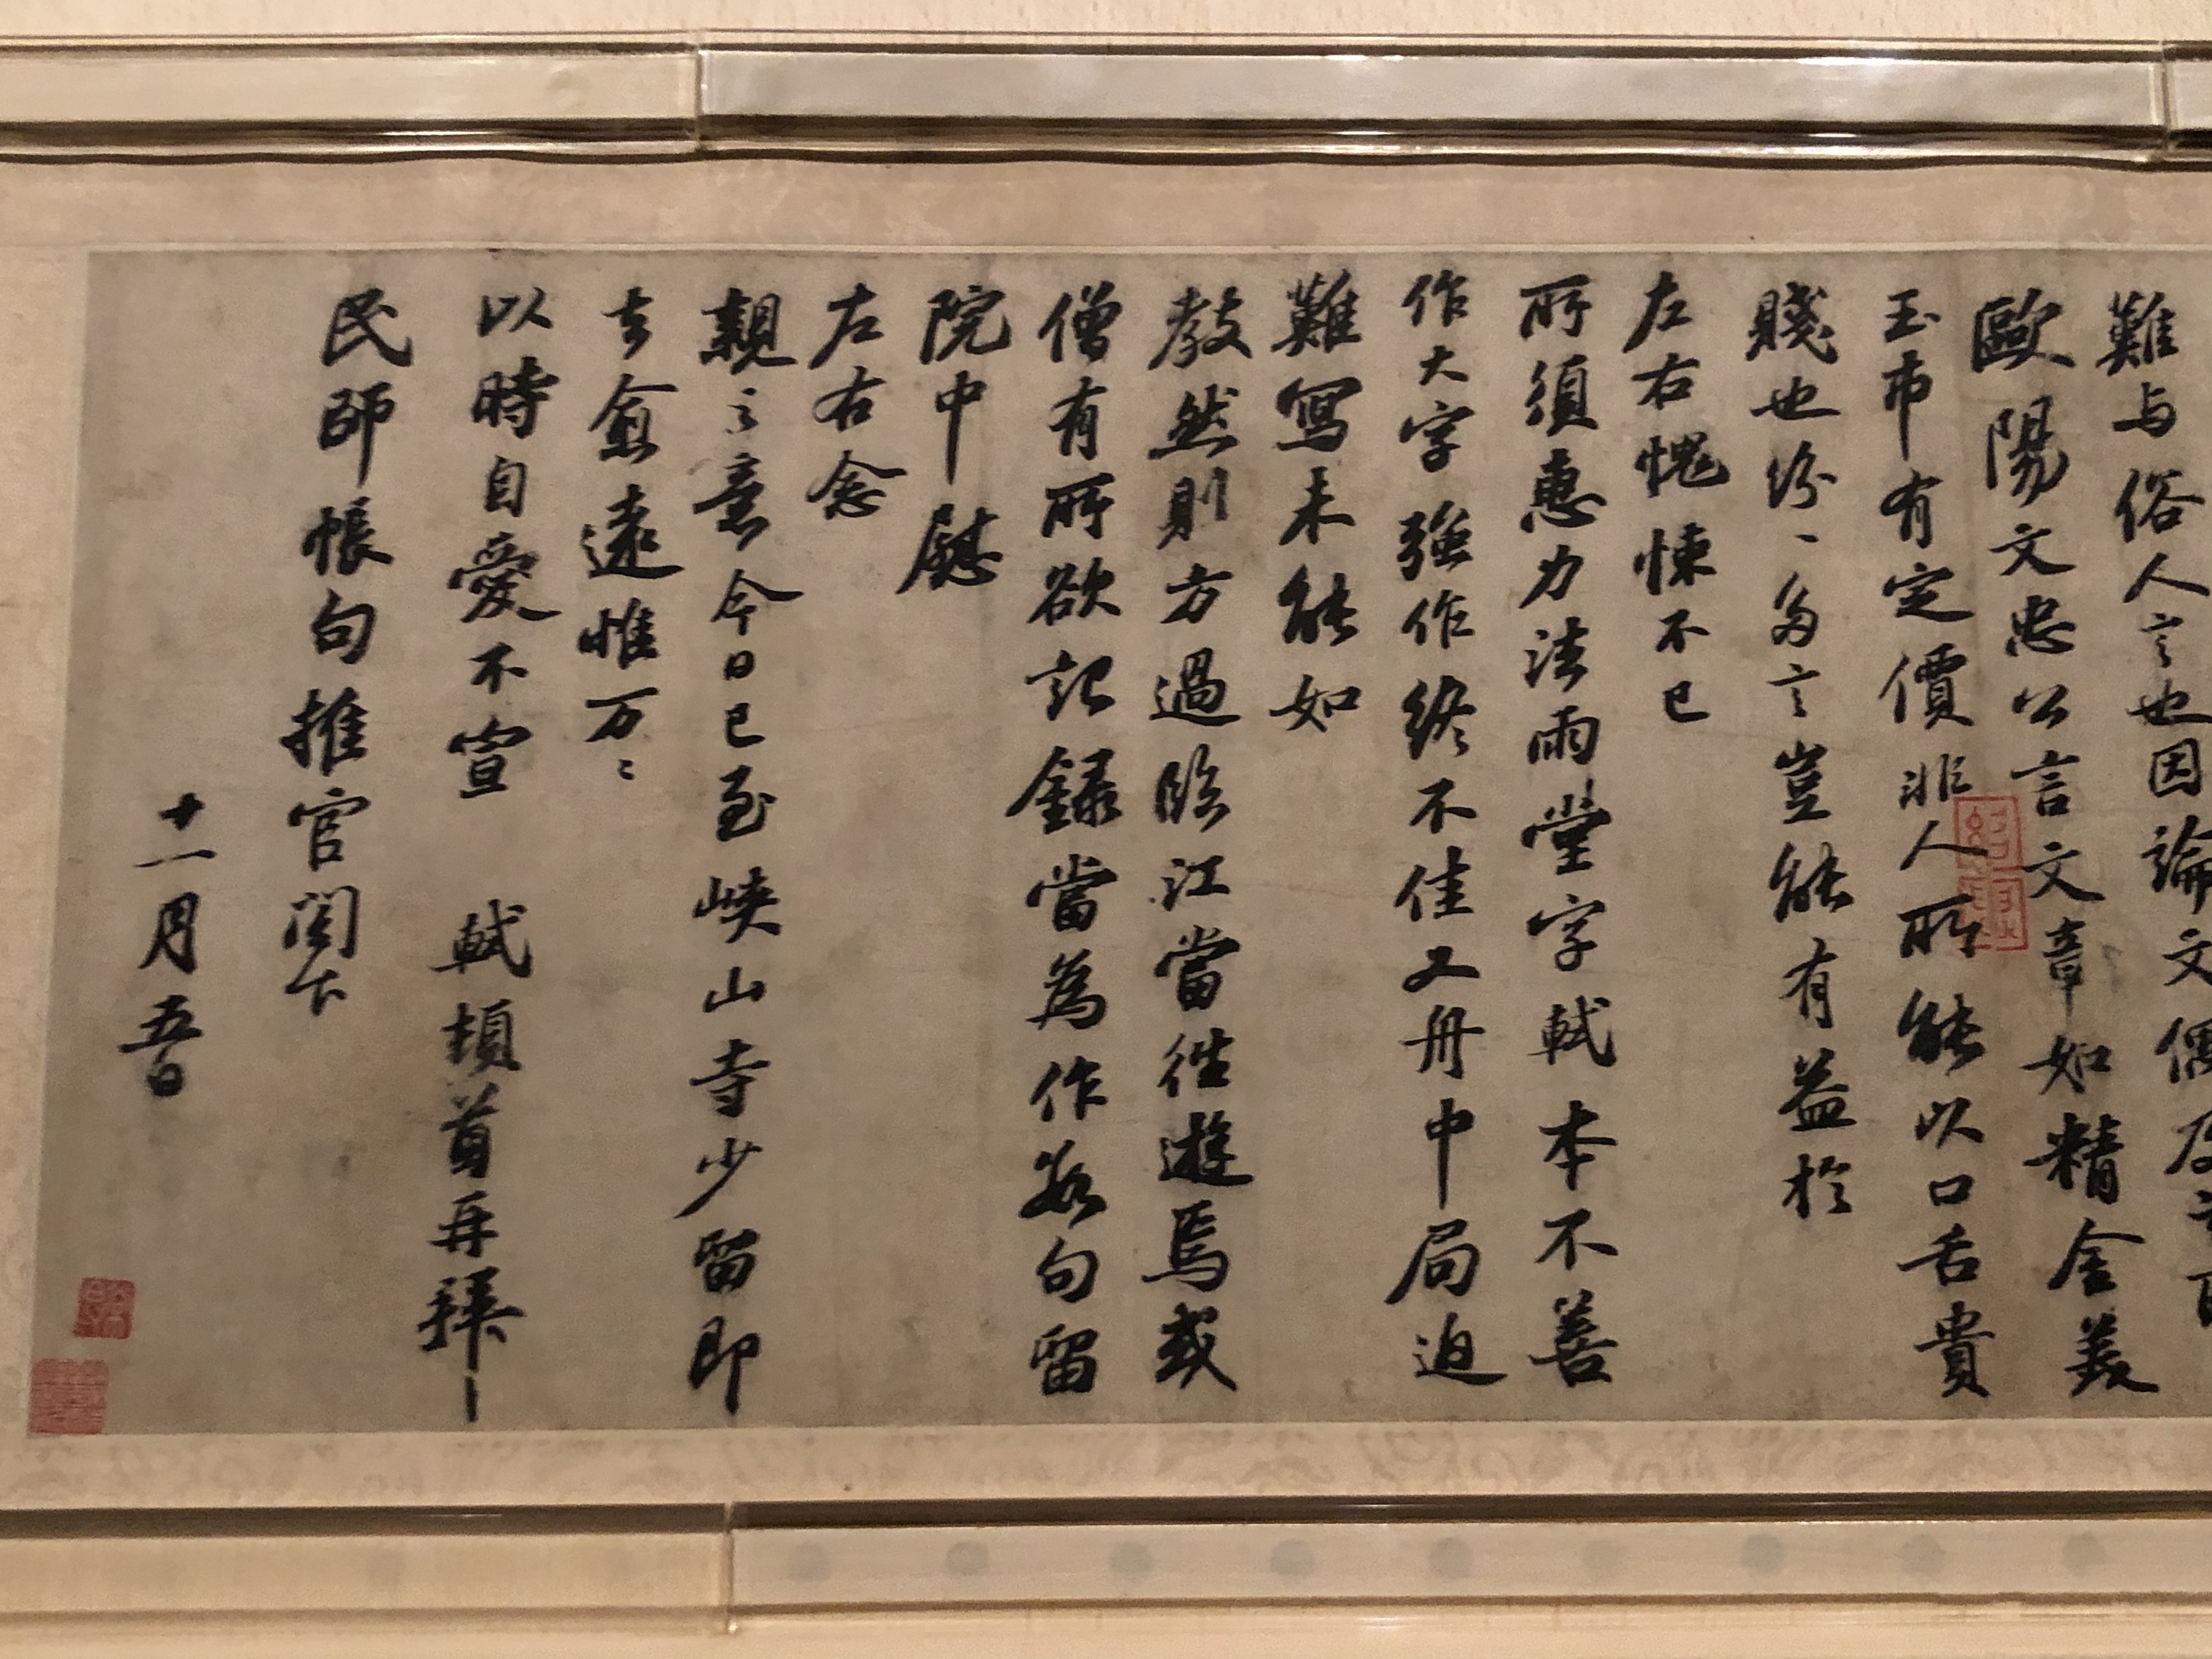 難与俗人言也因論文偶及
歐陽文忠公言文章如精金美
玉市有定價非人所能以口舌貴
賤也紛〻多言豈能有益於
左右愧悚不已
所須惠力法雨堂字軾本不善
作大字強作終不佳又舟中局迫
難寫未能如
教然則方過臨江當徃遊焉或
僧有所欲記録當為作數句留
院中慰
左右念
親〻意今日已至峽山寺少留即
去愈遠惟万〻
以時自愛不宣 軾頓首再拜
民師帳句推官閤下
十一月五日